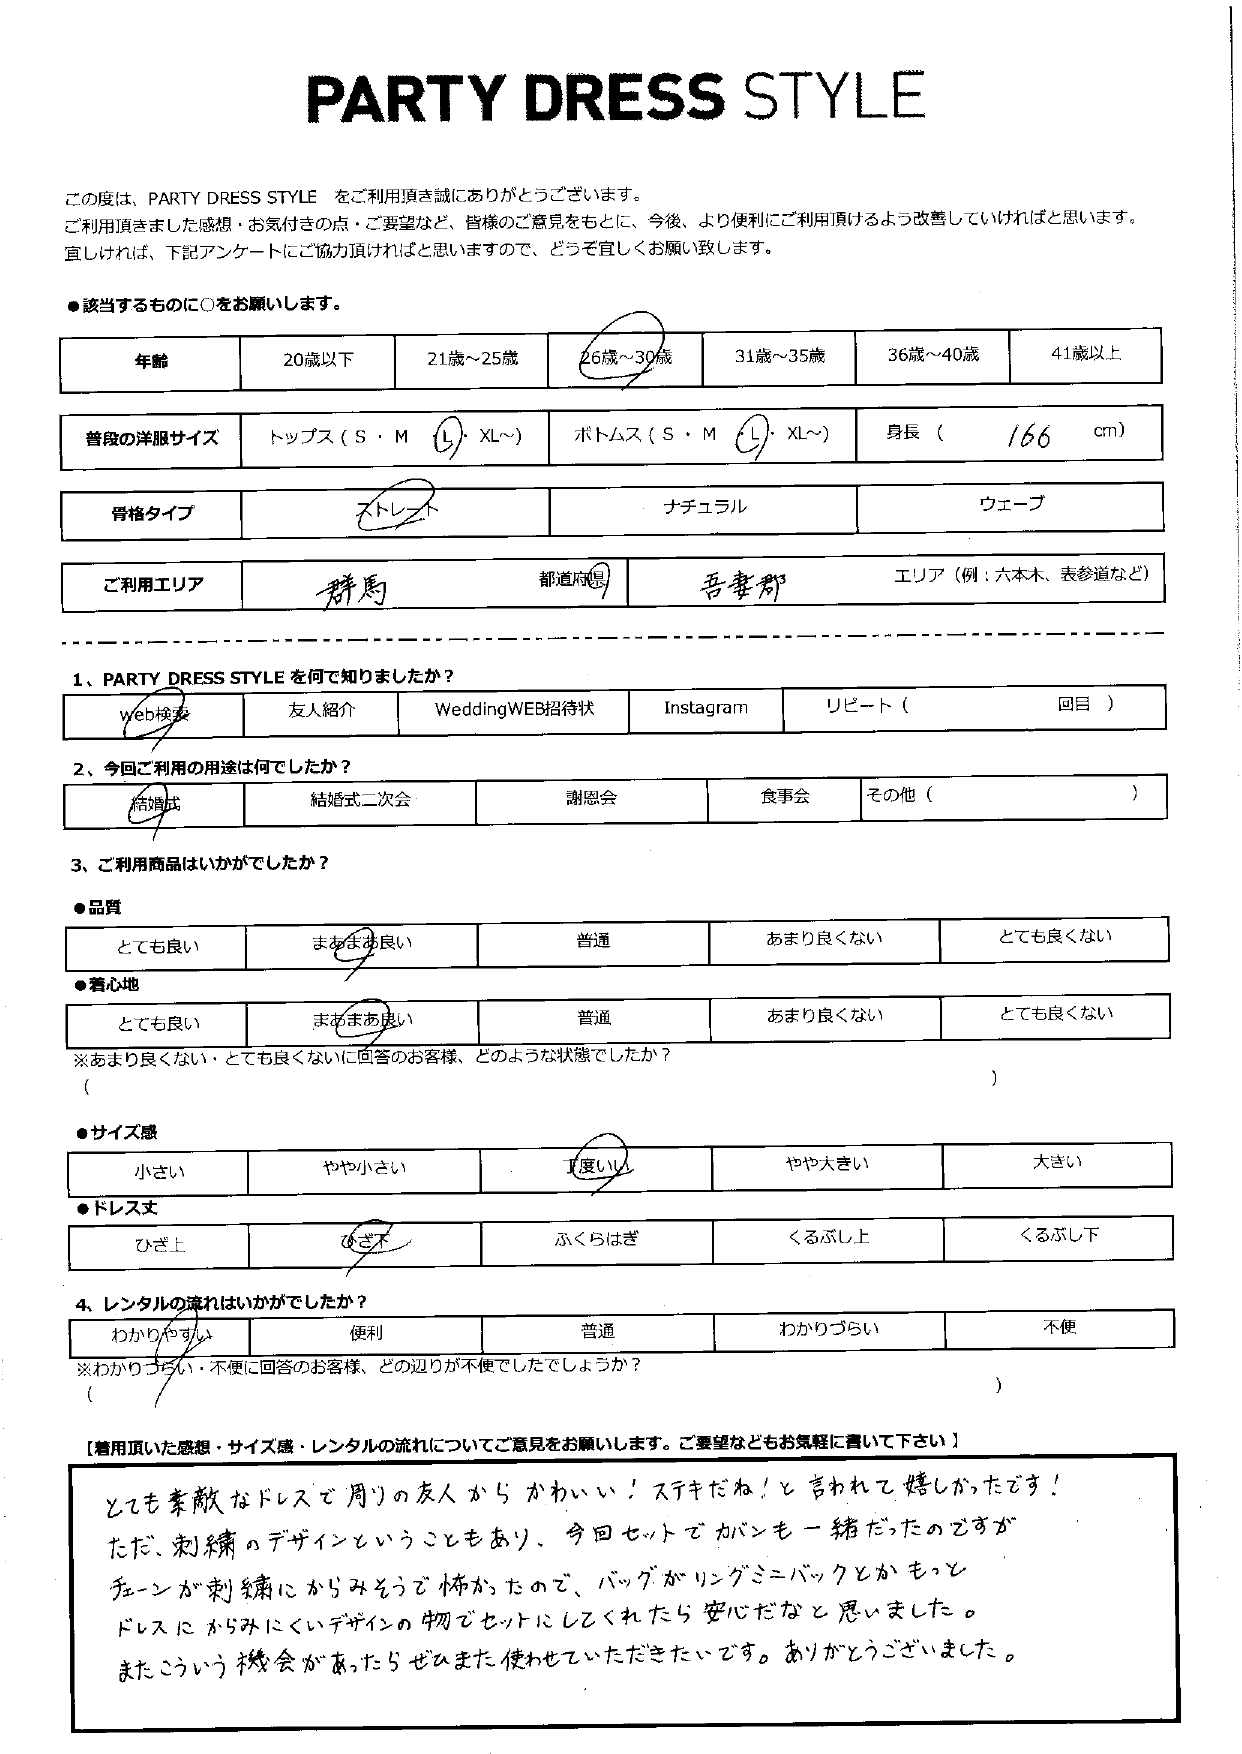 PARTY DRESS STYLE
この度は、PARTY DRESS STYLE をご利用頂き誠にありがとうございます。
ご利用頂きました感想・お気付きの点・ご要望など、皆様のご意見をもとに、今後、より便利にご利用頂けるよう改善していければと思います。
宜しければ、下記アンケートにご協力頂ければと思いますので、どうぞ宜しくお願い致します。
●該当するものに○をお願いします。
年齢 20歳以下 21歳～25歳 26歳～30歳 31歳～35歳 36歳～40歳 41歳以上
普段の洋服サイズ トップス ( S ・ M ・ L ・ XL～) ボトムス ( S ・ M ・ L ・ XL～) 身長 ( 166 cm)
骨格タイプ ストレート ナチュラル ウェーブ
ご利用エリア 群馬 都道府県 吾妻郡 エリア（例：六本木、表参道など）
1、PARTY DRESS STYLE を何で知りましたか？
web検索 友人紹介 WeddingWEB招待状 Instagram リピート ( 回目 )
2、今回ご利用の用途は何でしたか？
結婚式 結婚式二次会 謝恩会 食事会 その他 ( )
3、ご利用商品はいかがでしたか？
●品質
とても良い まあまあ良い 普通 あまり良くない とても良くない
●着心地
とても良い まあまあ良い 普通 あまり良くない とても良くない
※あまり良くない・とても良くないに回答のお客様、どのような状態でしたか？
( )
●サイズ感
小さい やや小さい 丁度いい やや大きい 大きい
●ドレス丈
ひざ上 ひざ下 ふくらはぎ くるぶし上 くるぶし下
4、レンタルの流れはいかがでしたか？
わかりやすい 便利 普通 わかりづらい 不便
※わかりづらい・不便に回答のお客様、どの辺りが不便でしたでしょうか？
( )
【着用頂いた感想・サイズ感・レンタルの流れについてご意見をお願いします。ご要望などもお気軽に書いて下さい】
とても素敵なドレスで周りの友人からかわいい！ステキだね！と言われて嬉しかったです！
ただ、刺繍のデザインということもあり、今回セットでカバンも一緒だったのですが
チェーンが刺繍にからみそうで怖かったので、バッグがリングミニバックとかもっと
ドレスにからみにくいデザインの物でセットにしてくれたら安心だなと思いました。
またこういう機会があったらぜひまた使わせていただきたいです。ありがとうございました。